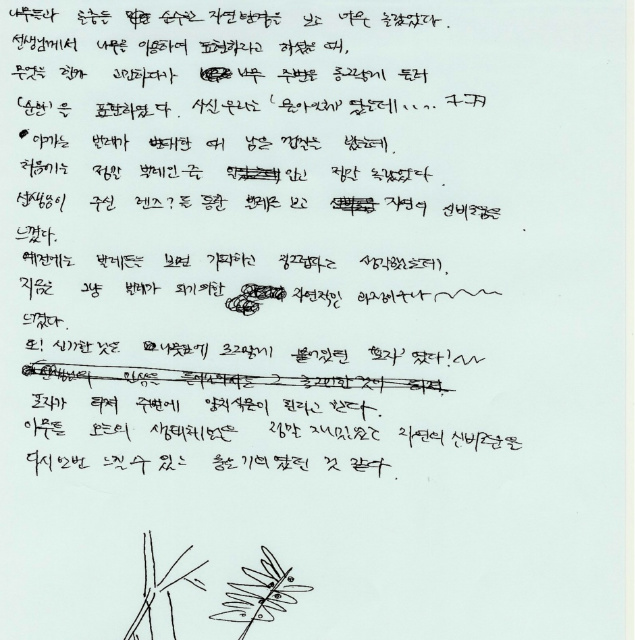 나뭇들과 순수한 자연 보고 너무 놀랐었다.
선생님께서 나무를 이용하여 표현하라고 하셨을 때,
무엇을 할까 고민하다가 나무 주변을 동그랗게 둘러
(순환)을 표현하였다. 사실 우리는
벌레가 때 남은 봤는데,
처음에는 정말 벌레인 줄 알고 정말 놀랐었다.
선생님이 주신 렌즈?를 통한 벌레를 보고 자연의 신비로움을
느꼈다.
예전에는 벌레들을 보면 기피하고 징그럽다고 생각했는데,
지금은 그냥 벌레가 되기 위한 자연적인 과정이구나
느꼈다.
또! 신기한 것은 나뭇잎에 조그맣게 붙어있던 '포자' 였다!
포자가 터져 주변에 양치식물이 된다고 한다.
아무튼 오늘의 생태체험은 정말 재밌었고 자연의 신비로움을
다시 한번 느낄 수 있는 좋은 기회였던 것 같다.